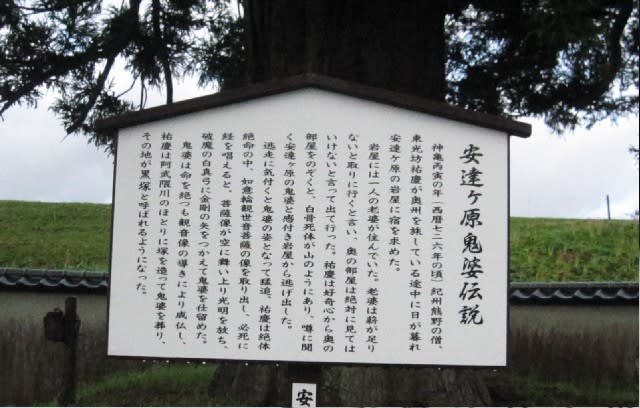 安達ヶ原鬼婆伝説
神亀丙寅の年(西暦七二六年の頃)紀州熊野の僧、
東光坊祐慶が奥州を旅している途中に日が暮れ
安達ヶ原の岩屋に宿を求めた。
岩屋には一人の老婆が住んでいた。老婆は薪が足り
ないと取りに行くと言い、奥の部屋は絶対に見ては
いけないと言って出て行った。祐慶は好奇心から奥の
部屋をのぞくと、白骨死体が山のようにあり、噂に聞
く安達ヶ原の鬼婆と感付き岩屋から逃げ出した。
逃走に気付くと鬼婆の姿となって猛追。祐慶は絶体
絶命の中、如意輪観世音菩薩の像を取り出し、必死に
経を唱えると、菩薩像が空に舞い上り光明を放ち、
破魔の白真弓に金剛の矢をつがえて鬼婆を仕留めた。
鬼婆は命を絶つも観音像の導きにより成仏し、
祐慶は阿武隈川のほとりに塚を造って鬼婆を葬り、
その地が黒塚と呼ばれるようになった。
安